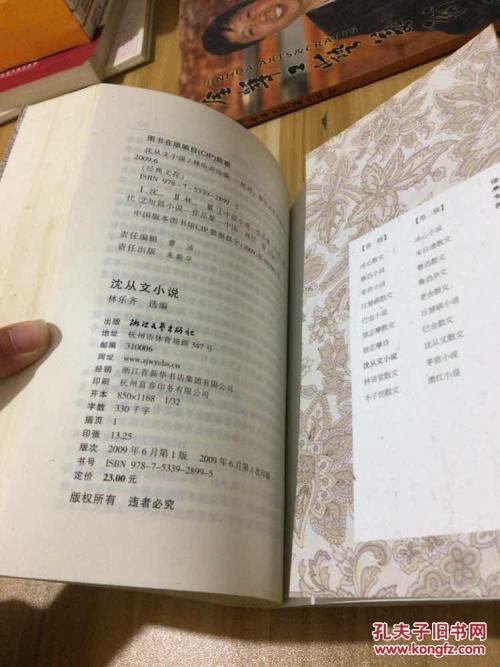 JINHUA ARTS&CRAFTS
图书在版编目(CIP)数据
沈从文小说/林乐齐选编
2009.6
(经典文存)
ISBN 978-7-5339-2899-5
Ⅰ.沈… Ⅱ.林… Ⅲ.①中篇小说
代 ②短篇小说—作品集—中国
中国版本图书馆CIP数据核字(2009)
责任编辑
责任出版 朱毅平
沈从文小说
林乐齐 选编
出版 浙江文艺出版社
地址 杭州市体育场路347号
邮编 310006
网址 www.zjwycbs.cn
经销 浙江省新华书店集团有限公司
印刷 杭州富春印务有限公司
开本 850×1168 1/32
字数 330千字
插页 1
印张 13.25
版次 2009年6月第1版 2009年6月第1次印刷
书号 ISBN 978-7-5339-2899-5
定价 23.00元
版权所有 违者必究
【第一辑】
冰心散文
鲁迅小说
老舍小说
汪曾祺散文
巴金小说
徐志摩散文
徐志摩诗
沈从文小说
林语堂散文
丰子恺散文
【第二辑】
冰心小说
朱自清散文
鲁迅散文
鲁迅杂文
老舍散文
汪曾祺小说
巴金散文
沈从文散文
茅盾小说
萧红小说
孔夫子旧书网
www.kongfz.com